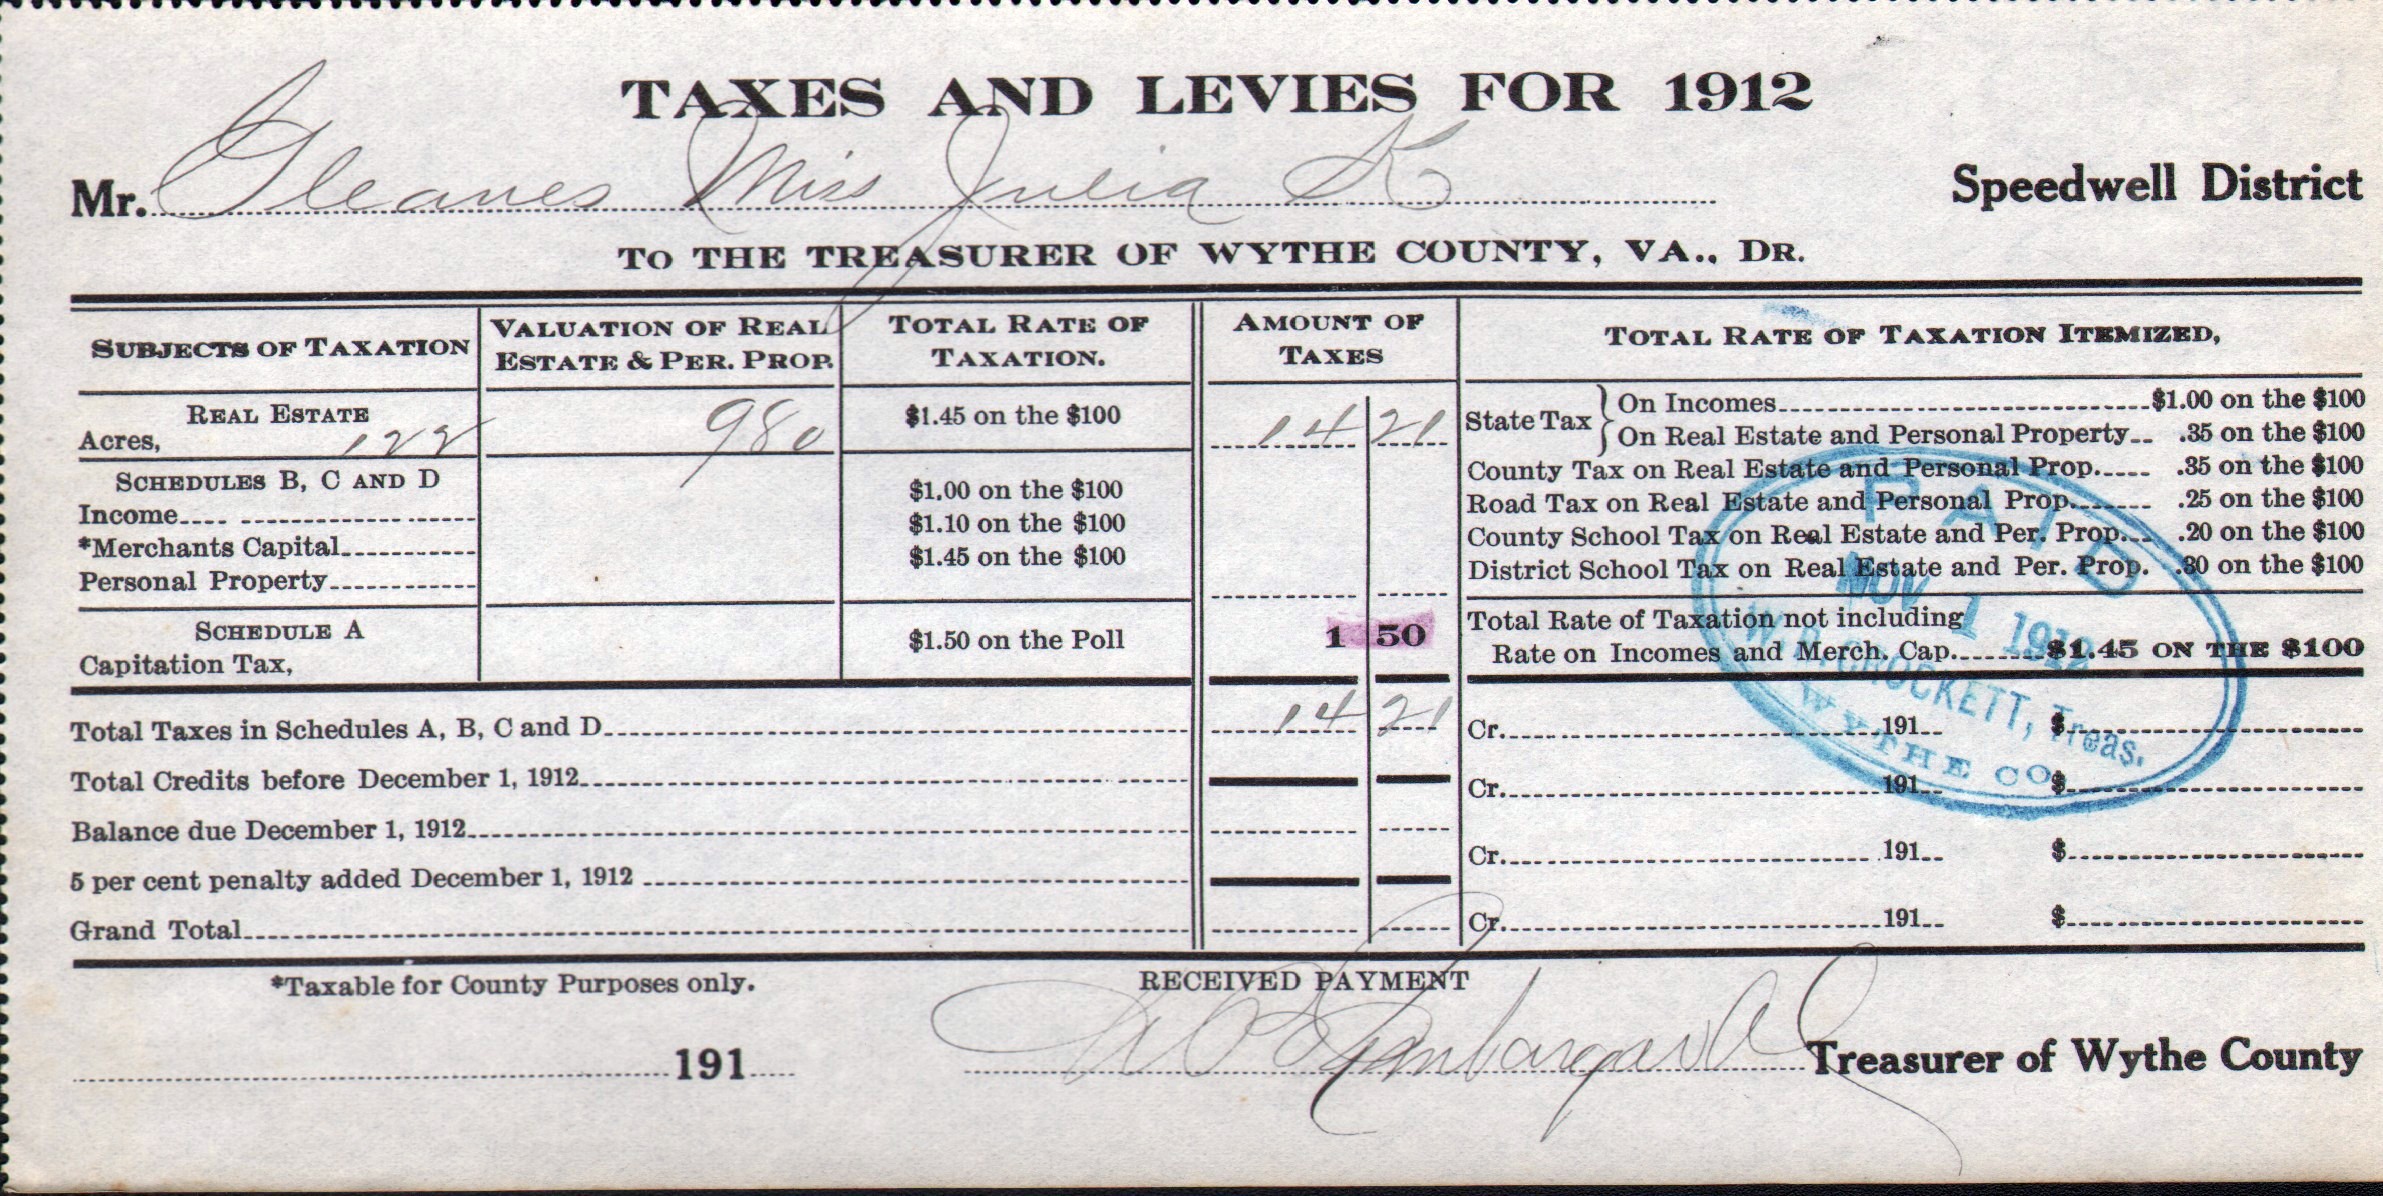 TAXES AND LEVIES FOR 1912
Mr. Gleaves Miss Julia K
Speedwell District
TO THE TREASURER OF WYTHE COUNTY, VA., DR.
SUBJECTS OF TAXATION
VALUATION OF REAL ESTATE & PER. PROP.
TOTAL RATE OF TAXATION.
AMOUNT OF TAXES
TOTAL RATE OF TAXATION ITEMIZED,
REAL ESTATE
Acres, 122 980 $1.45 on the $100 14 21
SCHEDULES B, C AND D
Income $1.00 on the $100
*Merchants Capital $1.10 on the $100
Personal Property $1.45 on the $100
SCHEDULE A
Capitation Tax, $1.50 on the Poll 1 50
State Tax } On Incomes $1.00 on the $100
On Real Estate and Personal Property .35 on the $100
County Tax on Real Estate and Personal Prop. .35 on the $100
Road Tax on Real Estate and Personal Prop. .25 on the $100
County School Tax on Real Estate and Per. Prop. .20 on the $100
District School Tax on Real Estate and Per. Prop. .30 on the $100
Total Rate of Taxation not including
Rate on Incomes and Merch. Cap. $1.45 ON THE $100
PAID
NOV 1 1912
CROCKETT, Treas.
WYTHE CO
Total Taxes in Schedules A, B, C and D 14 21
Total Credits before December 1, 1912
Balance due December 1, 1912
5 per cent penalty added December 1, 1912
Grand Total
Cr. 191 $
Cr. 191 $
Cr. 191 $
Cr. 191 $
*Taxable for County Purposes only.
RECEIVED PAYMENT
191
Treasurer of Wythe County